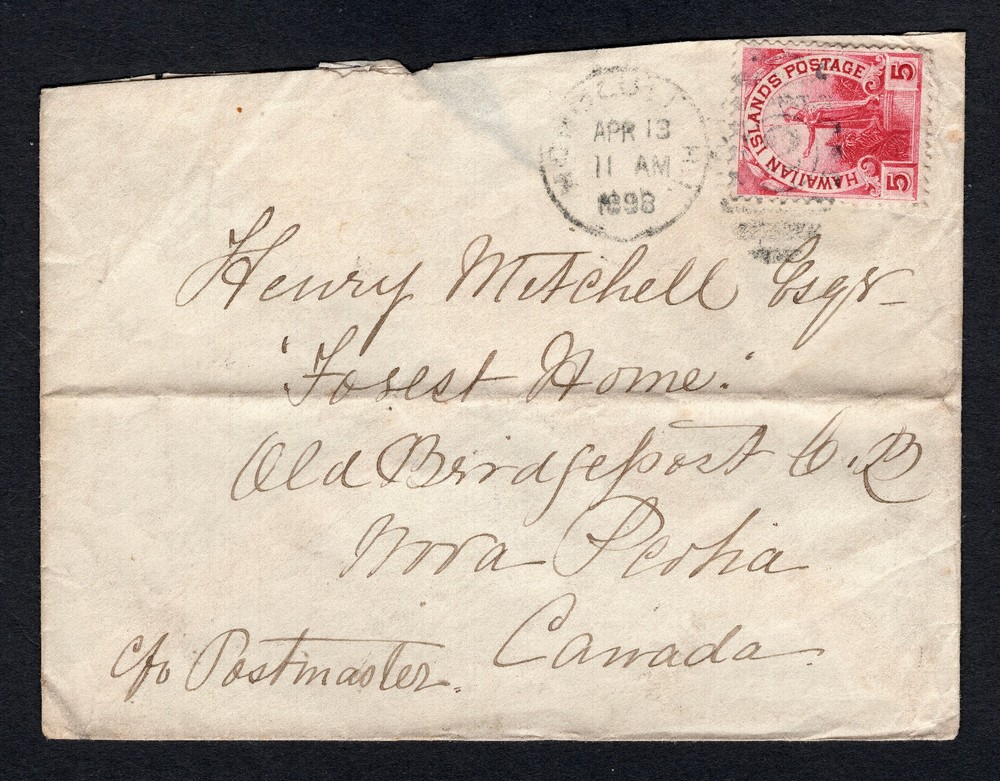 HONOLULU H.I.
APR 13
11 AM
1898
HAWAIIAN ISLANDS POSTAGE
5 5
Henry Mitchell Esqr
"Forest Home"
Old Bridgeport C.B
Nova Scotia
Canada
c/o Postmaster.